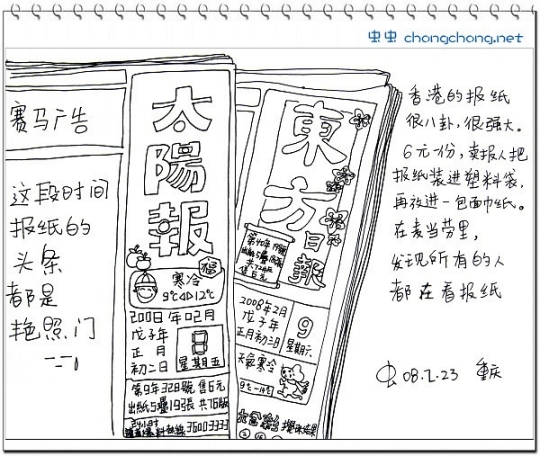 虫虫 chongchong.net
赛马广告
这段时间
报纸的
头条
都是
艳照门
太陽報
福
寒冷
9℃ 12℃
2008年02月
戊子年
正月
初二日
8
星期五
第9年328號 售6元
出紙5疊19張 共76版
35003333
東方日報
售6元
2008年2月
戊子年
正月初三日
9
星期六
天氣寒冷
香港的报纸
很八卦,很强大。
6元一份,卖报人把
报纸装进塑料袋,
再放进一包面巾纸。
在麦当劳里,
发现所有的人
都在看报纸
虫 08.2.23 重庆